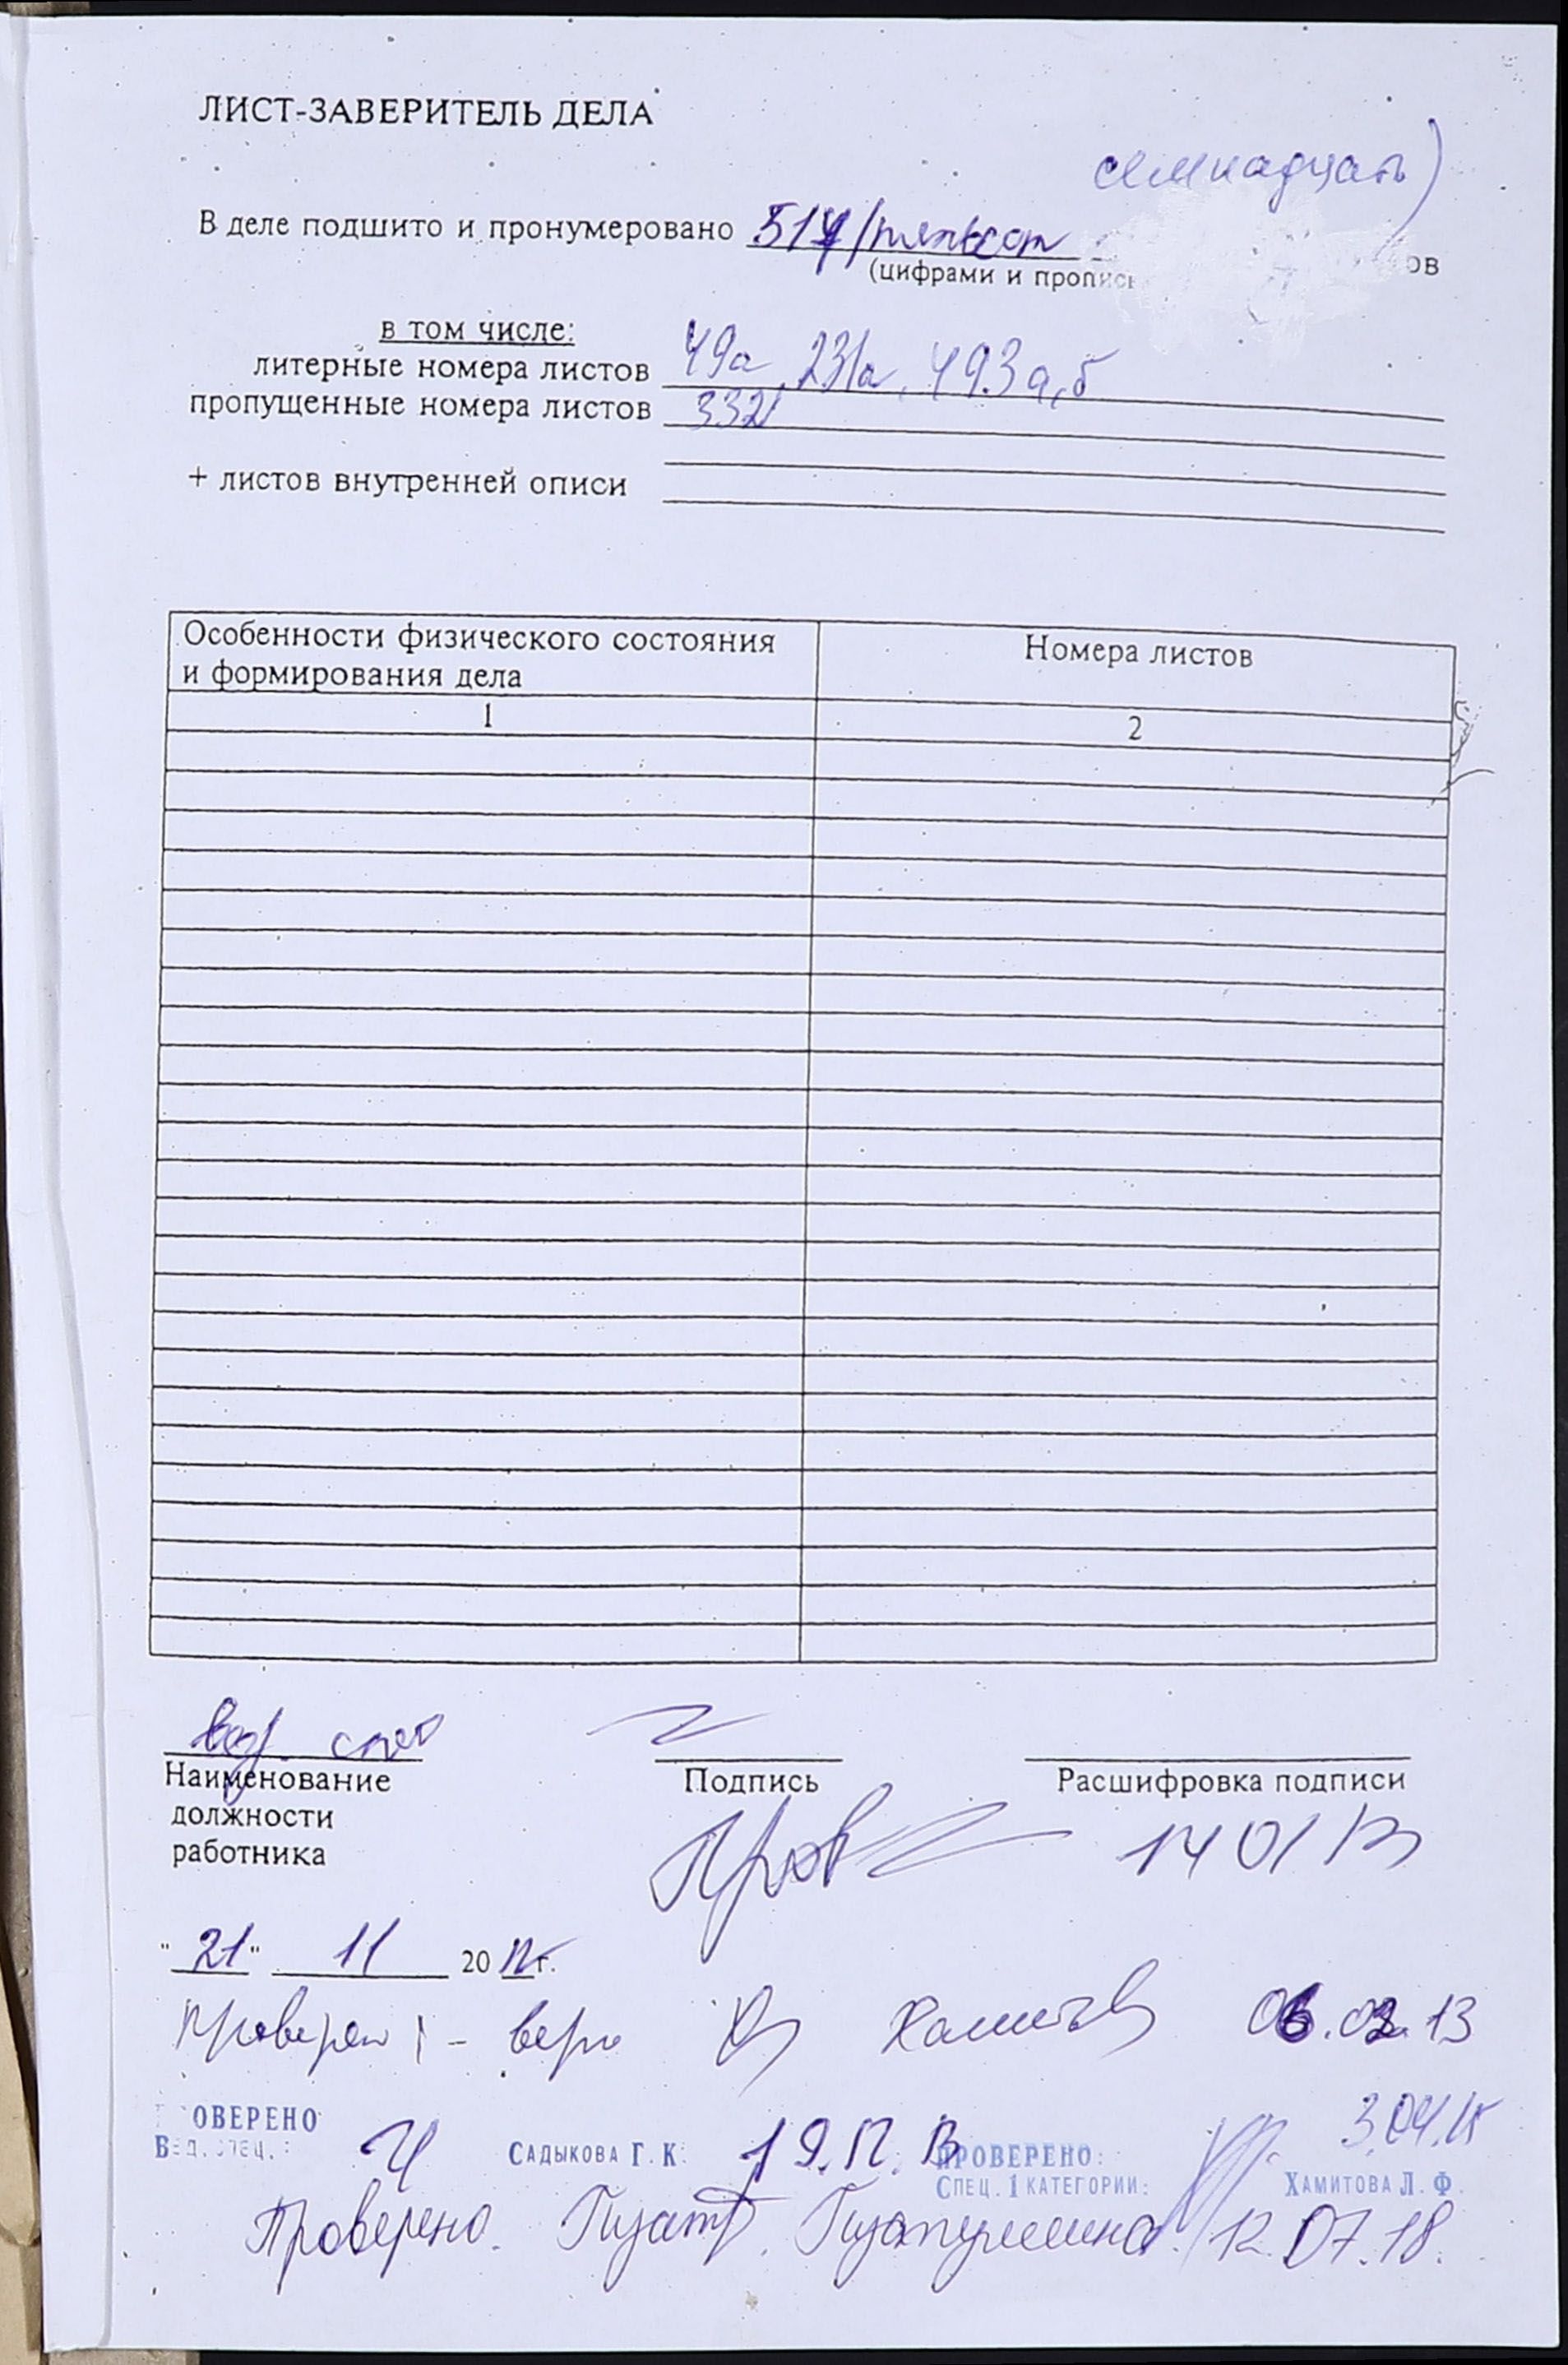 ЛИСТ-ЗАВЕРИТЕЛЬ ДЕЛА
семнадцать)
В деле подшито и пронумеровано 517 (пятьсот
(цифрами и пропис
ов
в том числе:
литерные номера листов 49а, 231а, 493а,б
пропущенные номера листов 332
+ листов внутренней описи
Особенности физического состояния
и формирования дела
Номера листов
1
2
вед. спец
Наименование
должности
работника
Подпись
Расшифровка подписи
Пров
14 01 13
"21" 11 2012г.
Проверен - верно 06.03.13
ОВЕРЕНО
ВЕД. СПЕЦ. :
САДЫКОВА Г. К. 19.12.13
ПРОВЕРЕНО:
СПЕЦ. 1 КАТЕГОРИИ:
ХАМИТОВА Л. Ф.
3.04.15
Проверено. 12.07.18.